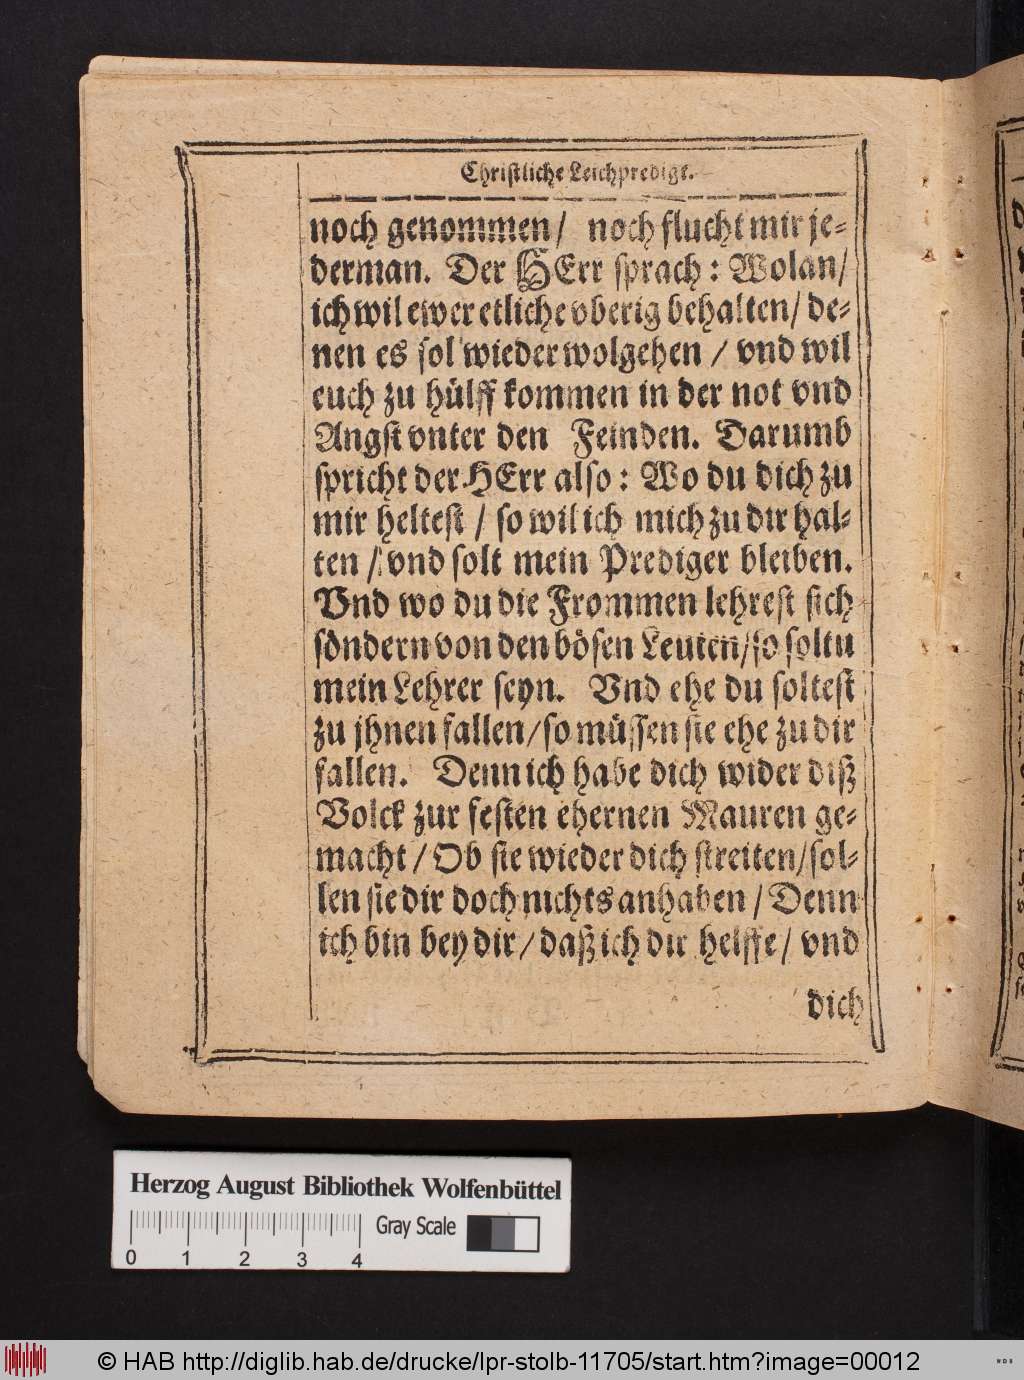 Christliche Leichpredigt.
noch genommen/ noch flucht mir je-
derman. Der HErr sprach: Wolan/
ich wil ewer etliche vberig behalten/ de-
nen es sol wieder wolgehen / vnd wil
euch zu hülff kommen in der not vnd
Angst vnter den Feinden. Darumb
spricht der HErr also: Wo du dich zu
mir heltest / so wil ich mich zu dir hal-
ten / vnd solt mein Prediger bleiben.
Vnd wo du die Frommen lehrest sich
söndern von den bösen Leuten/ so soltu
mein Lehrer seyn. Vnd ehe du soltest
zu jhnen fallen/ so müssen sie ehe zu dir
fallen. Denn ich habe dich wider diß
Volck zur festen ehernen Mauren ge-
macht / Ob sie wieder dich streiten/ sol-
len sie dir doch nichts anhaben / Denn
ich bin bey dir / daß ich dir helffe / vnd
dich
Herzog August Bibliothek Wolfenbüttel
Gray Scale
0 1 2 3 4
© HAB http://diglib.hab.de/drucke/lpr-stolb-11705/start.htm?image=00012